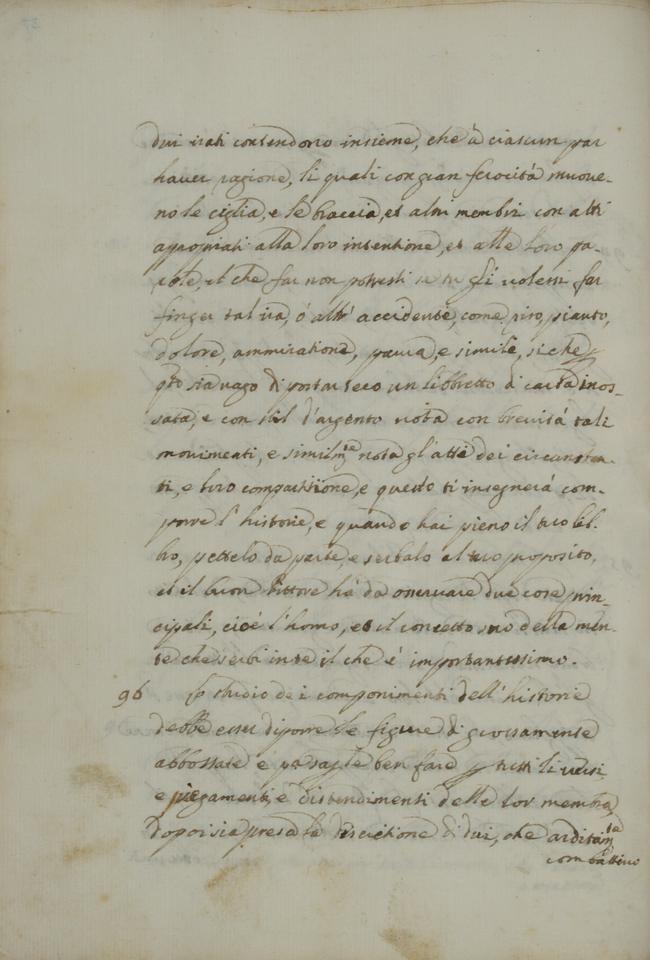 dui irati contendono insieme, che à ciascun par
haver ragione, li quali con gran ferocità muove-
no le ciglia, e le braccia, et altri membri con atti
appropriati alla loro intentione, et alle loro pa-
role, il che far non potresti se tu gli volessi far
finger tal ira, ò altr' accidente, come riso, pianto,
dolore, ammiratione, paura, e simile, si che
qto sia vago di portar teco un libbretto di carta inos-
sata, e con stil d'argento nota con brevità tali
movimenti, e similmte nota gl'atti dei circunstan-
ti, e loro compartitione, e questo ti insegnerà com-
porre l' historie, e quando hai pieno il tuo lib-
bro, mettelo da parte, e serbalo al tuo proposito,
et il buon Pittore hà da osservare due cose prin-
cipali, cioè l'homo, et il concetto suo della men-
te che serbi in te il che è importantissimo.
96 Lo studio de i componimenti dell' historie
debbe esser di porre le figure di grossamente
abbossate e pr saple ben fare p tutti li versi
e piegamenti, e distendimenti delle lor membra,
dopoi sia presa la discritione di dui, che arditamte
combattino